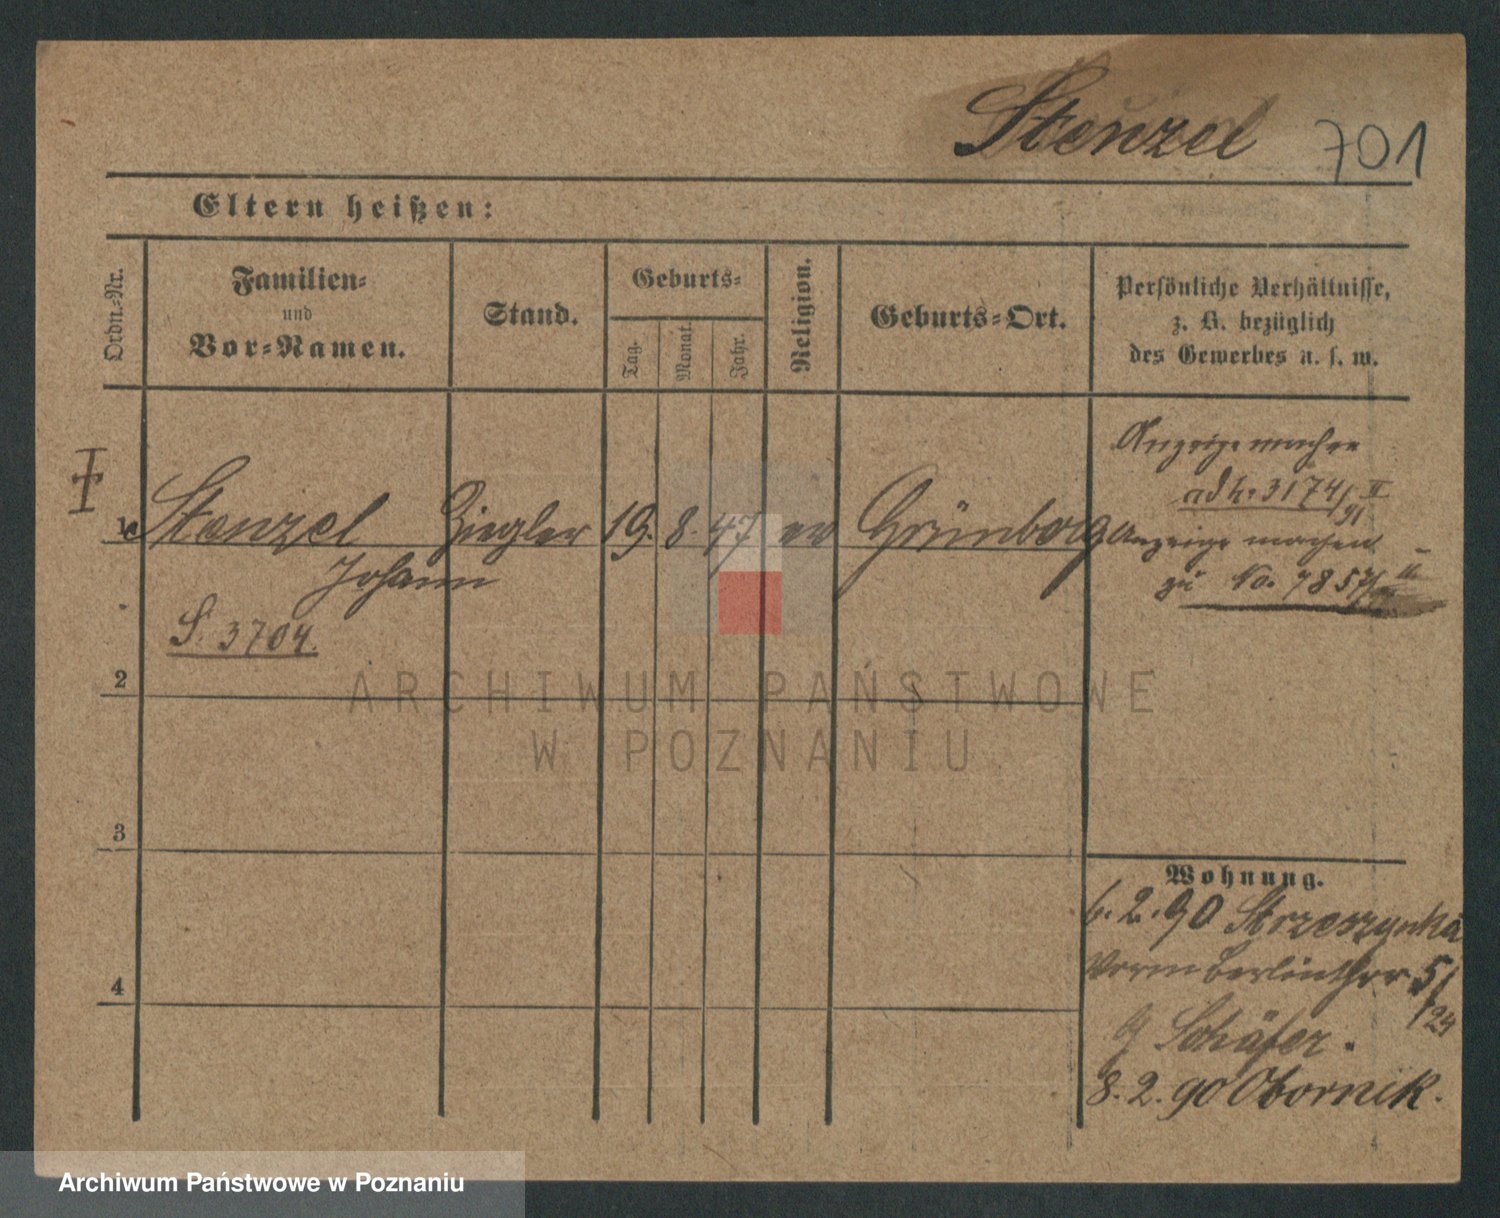 Stenzel 701
Eltern heißen:
Ordn.-Nr.
Familien-
und
Vor-Namen.
Stand.
Geburts-
Tag.
Monat.
Jahr.
Religion.
Geburts-Ort.
Persönliche Verhältnisse,
z. B. bezüglich
des Gewerbes u. s. w.
Anzeige machen
ad h. 3174/91 II
1 Stenzel Ziegler 19. 8. 47 ev Grünberg
Johann
Anzeige machen
zu No. 7857/ II
S. 3704.
2
3
4
Wohnung.
6. 2. 90 Strzeszynka
Vorm Berlinthor 5/24
Schäfer.
8. 2. 90 Obornik.
ARCHIWUM PAŃSTWOWE
W POZNANIU
Archiwum Państwowe w Poznaniu